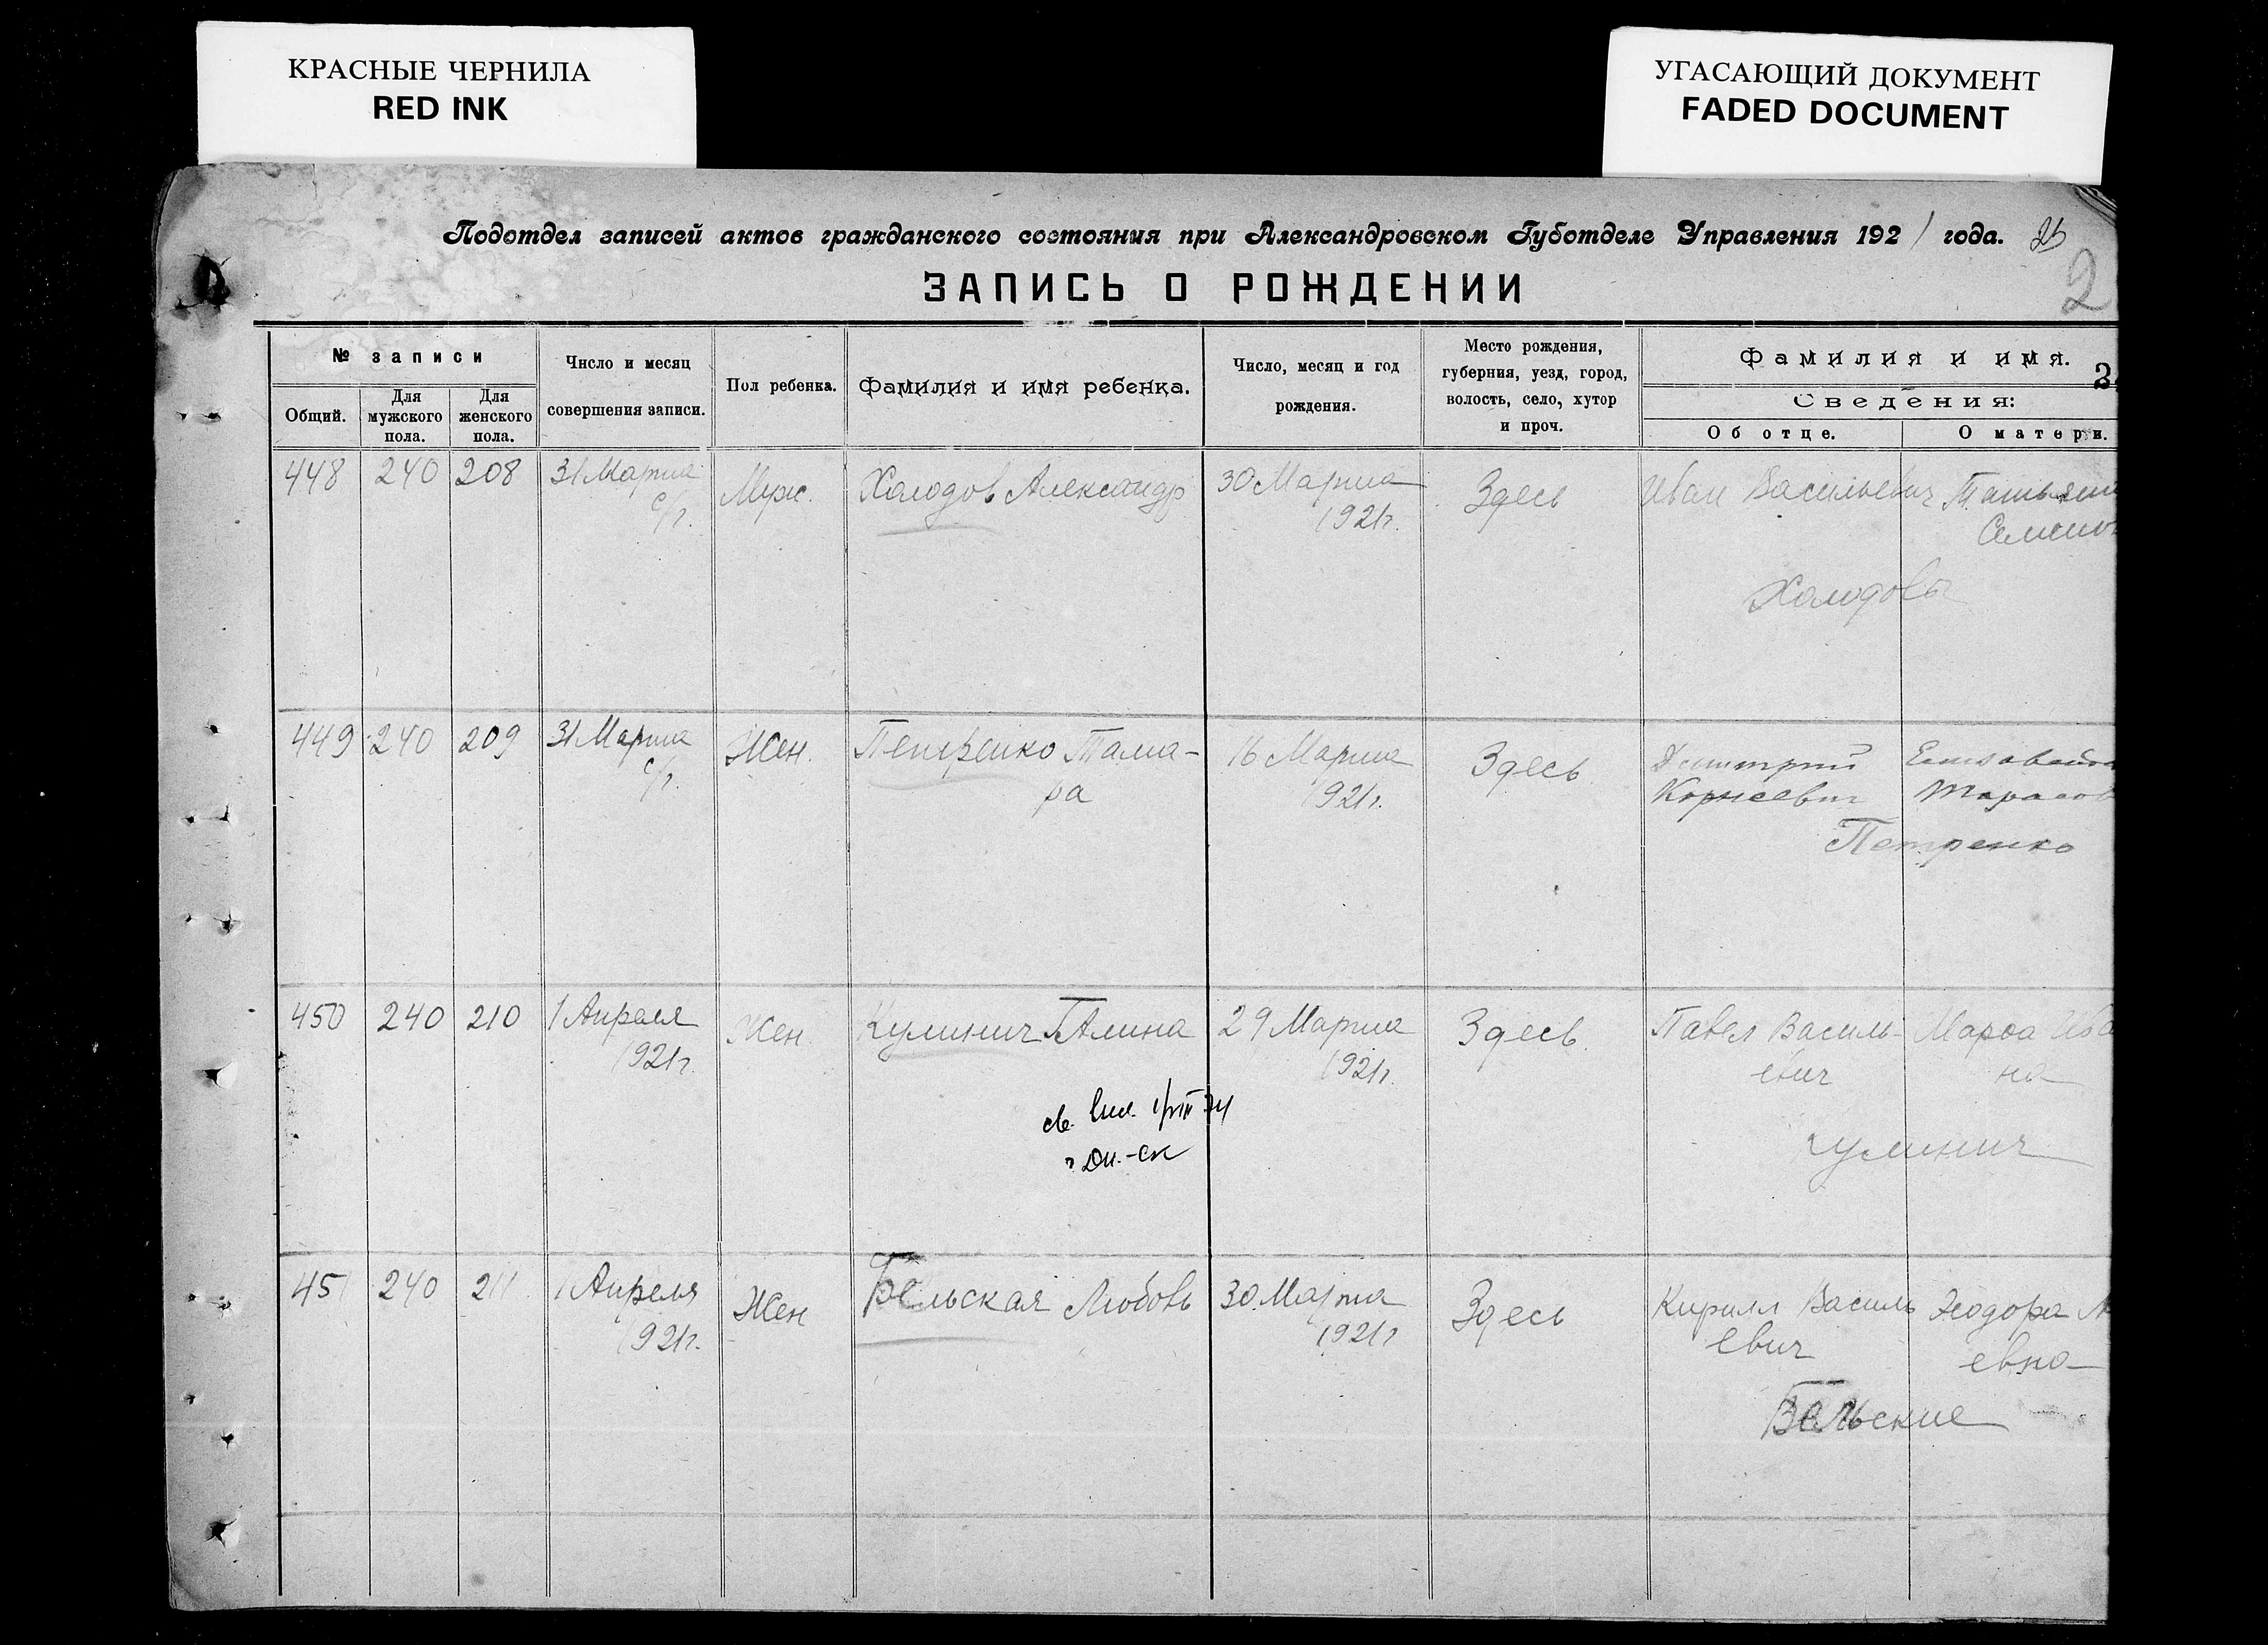 КРАСНЫЕ ЧЕРНИЛА
RED INK
УГАСАЮЩИЙ ДОКУМЕНТ
FADED DOCUMENT
Подотдел записей актов гражданского состояния при Александровском Губотделе Управления 1921 года.
2
ЗАПИСЬ О РОЖДЕНИИ
№ записи
Общий.
Для мужского пола.
Для женского пола.
Число и месяц совершения записи.
Пол ребенка.
Фамилия и имя ребенка.
Число, месяц и год рождения.
Место рождения, губерния, уезд, город, волость, село, хутор и проч.
Фамилия и имя.
Сведения:
Об отце.
О матери.
448 240 208 31 Марта Муж. Холодов Александр 30 Марта Здесь Иван Васильевич
с/г. 1921г.
Холодовы
449 240 209 31 Марта Жен. Петренко Тама- 16 Марта Здесь Димитрий
с/г. ра 1921г. Корнеевич
Петренко
450 240 210 1 Апреля Жен Кулинич Галина 29 Марта Здесь. Павел Василь-
1921г. 1921г. евич на
Кулинич
451 240 211 1 Апреля Жен Бельская Любовь 30 Марта Здесь Кирилл Василь Феодора
1921г. 1921г евич евна
Бельские